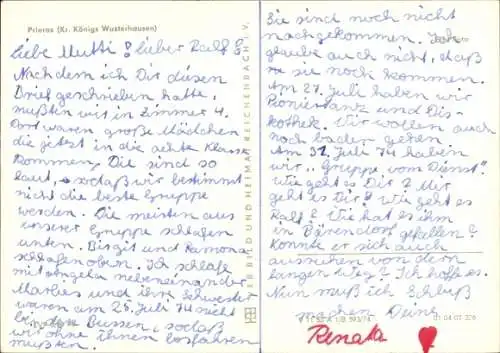 Prieros (Kr. Königs Wusterhausen)
Liebe Mutti! Lieber Ralf!
Nachdem ich Dir diesen
Brief geschrieben hatte,
mußten wir in Zimmer 4.
Dort waren große Mädchen
die jetzt in die achte Klasse
kommen. Die sind so
laut, sodaß wir bestimmt
nicht die beste Gruppe
werden. Die meisten aus
unserer Gruppe schlafen
unten. Birgit und Ramona
schlafen oben. Ich schlafe
mit Angela nebeneinander
Marlies und ihre Schwester
waren am 25. Juli 74 nicht
bei den Bussen, sodaß
wir ohne ihnen losfahren
mußten.
VEB BILD UND HEIMAT REICHENBACH I. V.
Sie sind noch nicht
nachgekommen. Ich
glaube auch nicht, daß
sie noch kommen.
Am 27. Juli haben wir
Pioniertanz und Dis-
kothek. Wir wollen auch
noch baden gehen.
Am 31. Juli 74 haben
wir „Gruppe vom Dienst".
Wie geht es Dir? Mir
geht es Dir? Wie geht es
Ralf? Wie hat es ihm
in Bärendorf gefallen?
Konnte er sich auch
ausruhen von dem
langen Weg? Ich hoffe es.
Nun muß ich Schluß
machen Deine
Renata